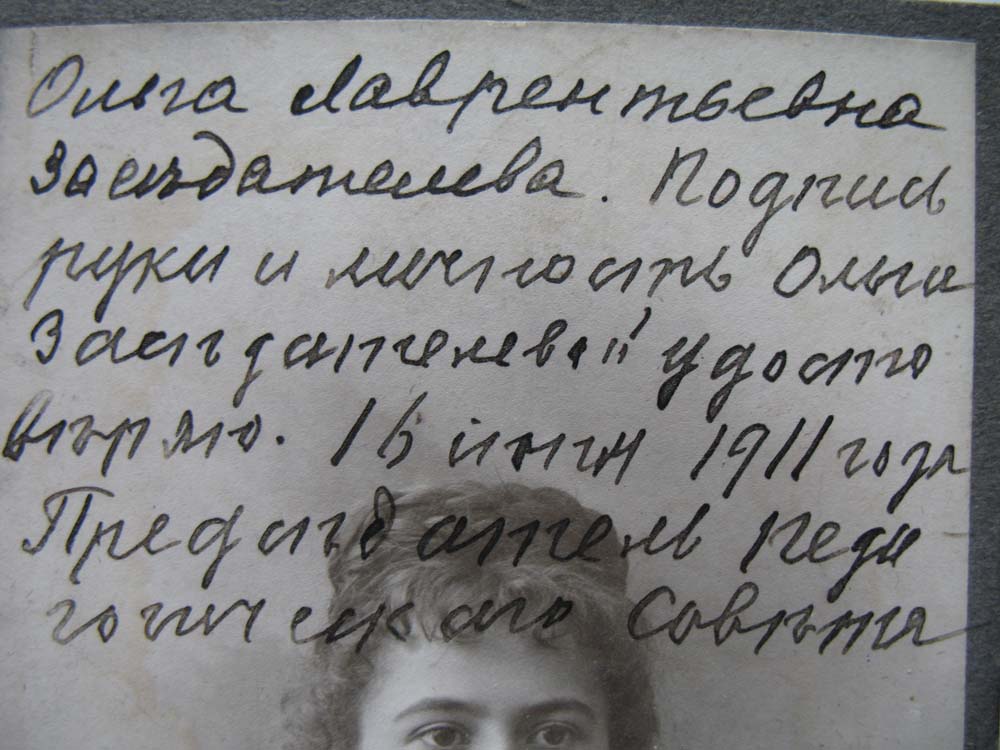 Ольга Лаврентьевна
Засѣдателева. Подпись
руки и личность Ольги
Засѣдателевой удосто
вѣряю. 16 іюня 1911 года
Предсѣдатель педа
гогическаго Совѣта